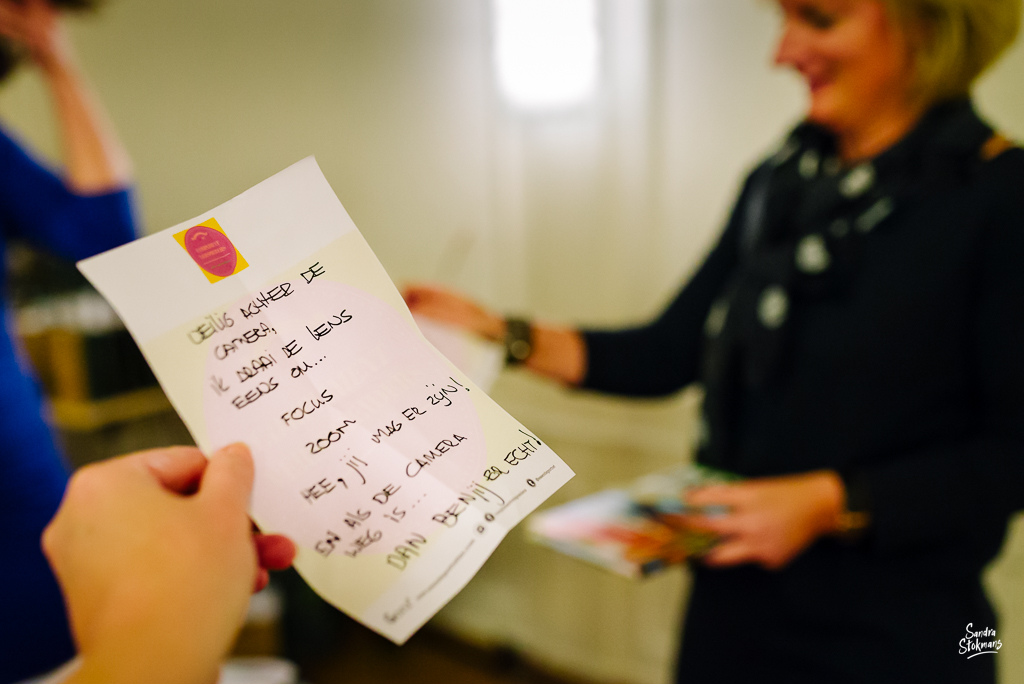 VEILIG ACHTER DE
CAMERA,
IK DRAAI DE LENS
EENS OM...
FOCUS
ZOOM
HEE, JIJ MAG ER ZIJN!
EN ALS DE CAMERA
WEG IS...
DAN BEN JIJ ER ECHT!
Sandra
Stokmans